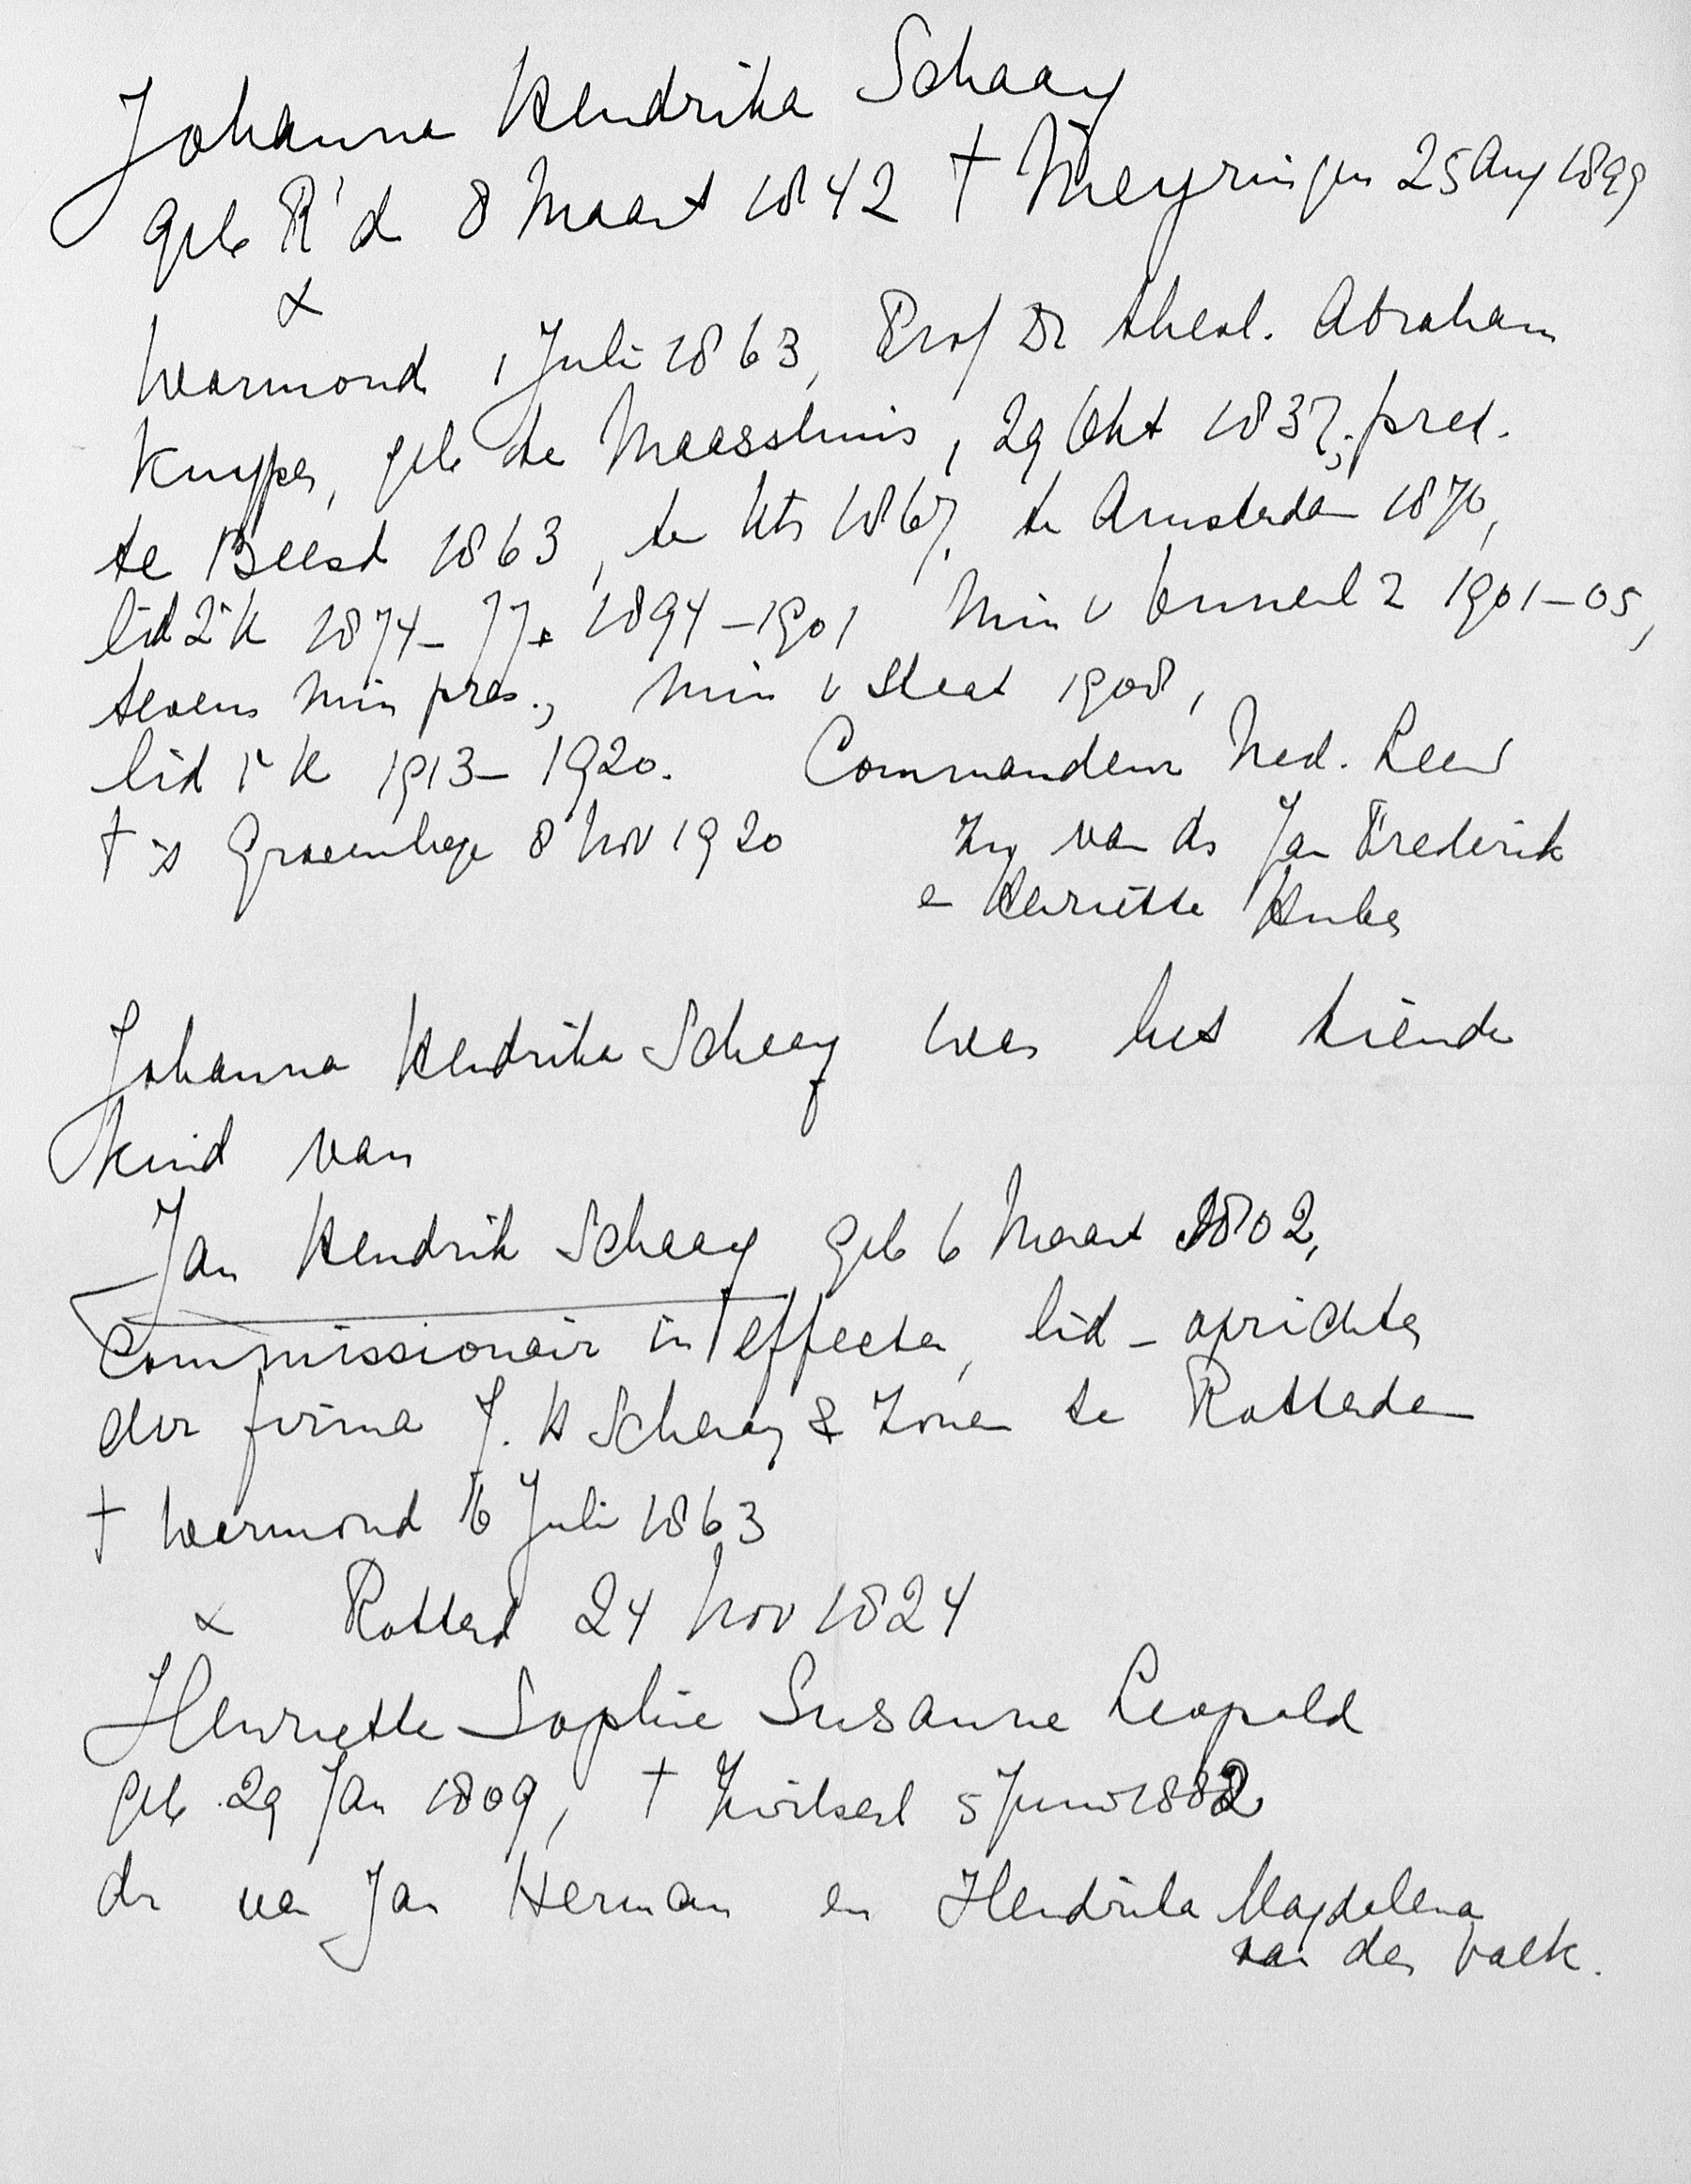 Johanna Hendrika Schaay
geb R'd 8 Maart 1842 † Meyringen 25 Aug 1899
x
Warmond 1 Juli 1863, Prof Dr theol. Abraham
Kuyper, geb te Maassluis, 29 Okt 1837, pred.
te Beesd 1863, te Utr 1867, te Amsterdam 1870,
lid 2e K 1874-77 + 1894-1901 Min v 1901-05,
tevens min pres., min v Staat 1908,
lid 1e K 1913-1920. Commandeur Ned. Leeuw
† 's Gravenhage 8 Nov 1920 Zn van ds Jan Frederik
en Henriëtte Huber
Johanna Hendrika Schaay was het tiende
kind van
Jan Hendrik Schaay geb 6 Maart 1802,
Commissionair in effecten, lid-oprichter
der firma J. H Schaay & Zonen te Rotterdam
† Warmond 16 Juli 1863
x Rotterd 24 Nov 1824
Henriette Sophie Susanne Leopold
geb 29 Jan 1809, † 5 Juni 1882
dr van Jan Herman en Hendrika Magdalena
van der Valk.